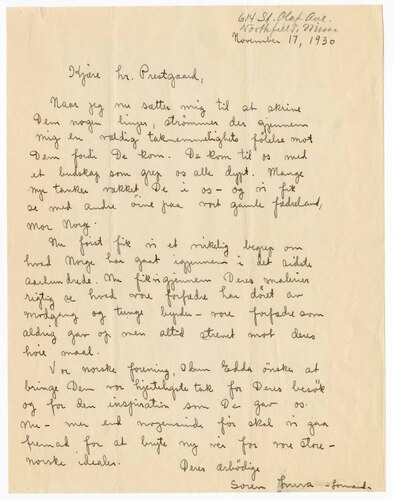 614 St. Olaf Ave.
Northfield, Minn
November 17, 1930
Kjære hr. Prestgaard,
Naar jeg nu sætter mig til at skrive
Dem nogen linjer, strømmer der gjennem
mig en vældig taknemmelighets følelse mot
Dem fordi De kom. De kom til os med
et budskap som grep os alle dypt. Mange
nye tanker vækket De i os - og vi fik
se med andre öine paa vort gamle fædreland,
Mor Norg.
Nu först fik vi et virkelig begrep om
hvad Norge har gaat igjennem i det sidste
aarhundrede. Nu fik vi gjennem Deres malerier
rigtig se hvad vore forfædre har döiet av
modgang og tunge byrder - vore forfædre som
aldrig gav op men altid stremt mot deres
höie maal.
Vor norske forening, Edda önsker at
bringe Dem vor hjerteligste tak for Deres besök
og for den inspiration som De gav os.
Nu - mer end nogensinde för skal vi gaa
fremad for at bryte ny vei for vore store
norske idealer.
Deres ærbödige
Soren - formand -